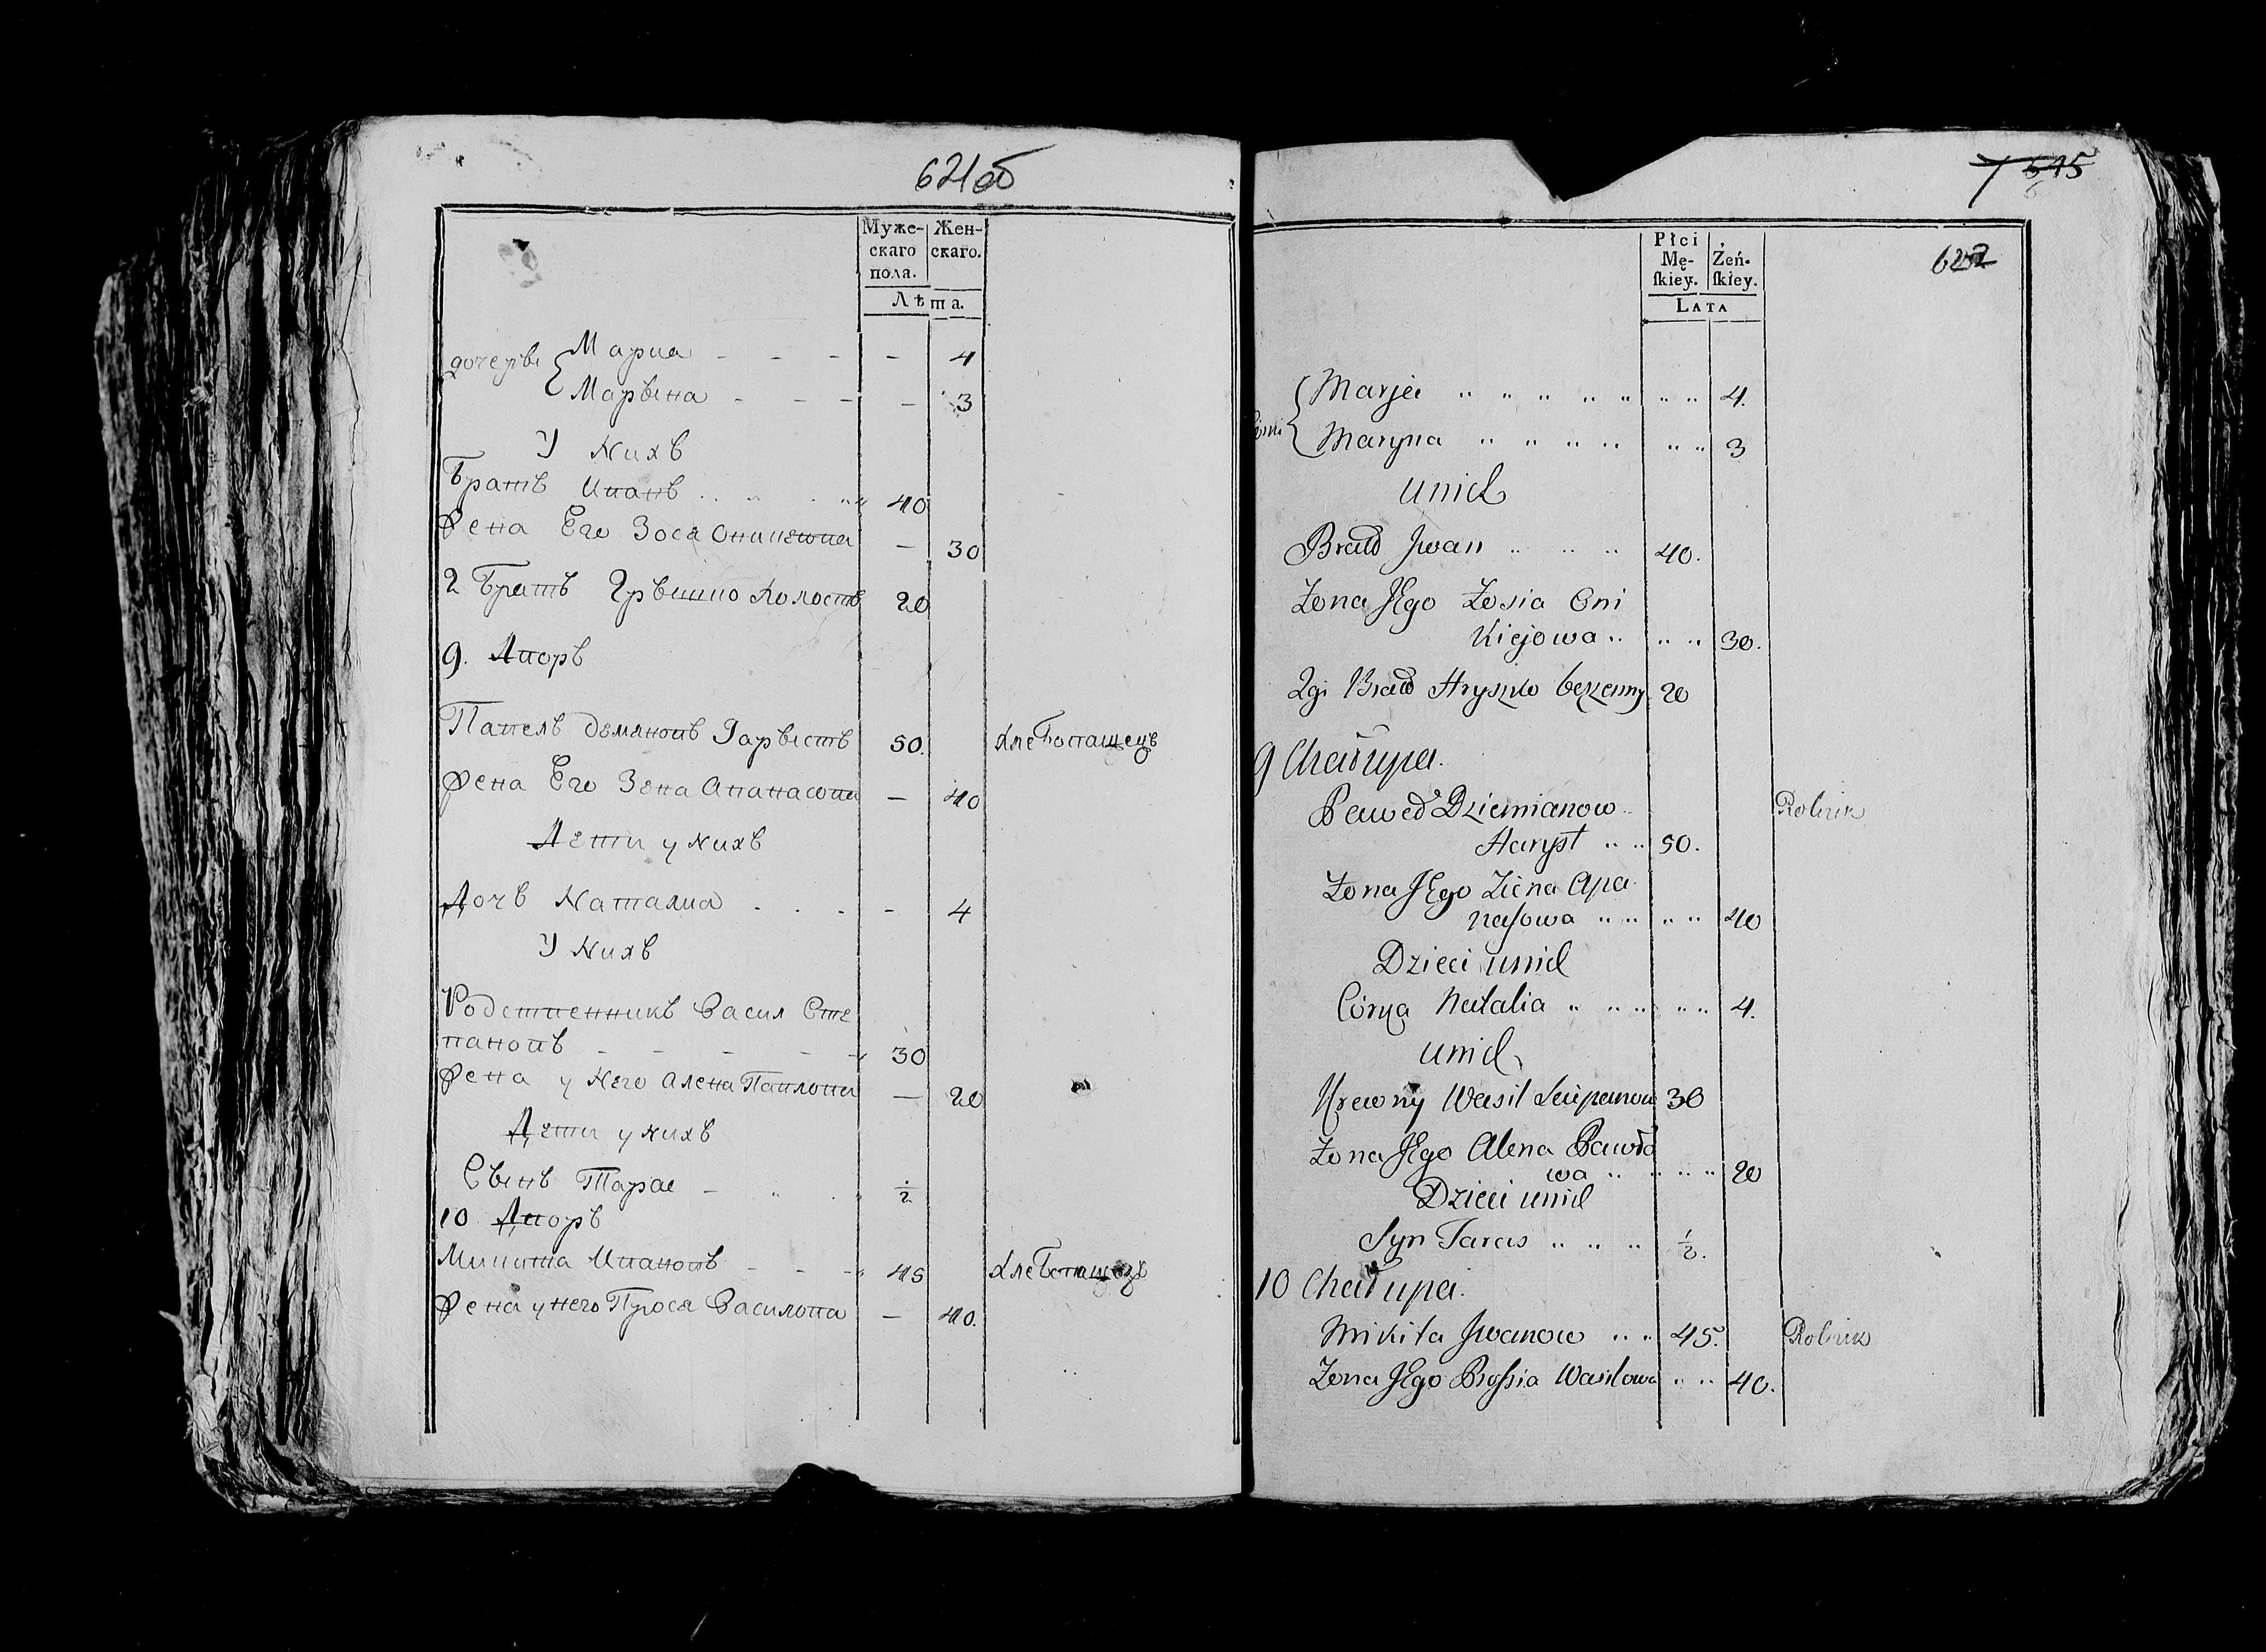 621об
Муже-
скаго
пола.
Жен-
скаго.
Лѣта.
дочерѣ
Мариа - - - - 4
Марьѣна - - - - 3
У Нихъ
Братъ Иванъ 40
Жена Его Зося Оникеева — 30
2 Братъ Грѣшко Холостъ 20
9. Дворъ
Павелъ Демяновъ Гарѣстъ 50. Хлебопашецъ
Жена Его Зена Апанасова — 40
Дети у нихъ
Дочь Наталиа . . . - 4
У Нихъ
Родственникъ Васил Сте
пановъ - - - - - 30
Жена у Него Алена Павлова — 20
Дети у нихъ
Сѣнъ Тарас - 1/2
10 Дворъ
Микита Ивановъ - - - 45 Хлебопашецъ
Жена у него Прося Василова — 40.
622
Płci
Mę-
ſkiey.
Żeń-
ſkiey.
LATA
Marja " " " " " " " 4.
Maryna " " " " " " 3
unich
Brat Jwan " " " 40.
Żona JEgo Zosia Oni
kiejowa " " " 30.
2gi Brat Hryszko beżenny 20
9 Chałupa.
Paweł Dziemianow Rolnik
Haryst " " 50.
Żona JEgo Ziena Apa
naſowa " " " " 40
Dzieci unich
Córka Natalia " " " " " 4.
unich
Krewny Wasil Sciepanow 30
Żona JEgo Alena Pawło
wa " " " " 20
Dzieci unich
Syn Taras " " " 1/2.
10 Chałupa.
Mikita Jwanow " " 45. Rolnik
Żona JEgo Proſsia Wasilowa " " 40.